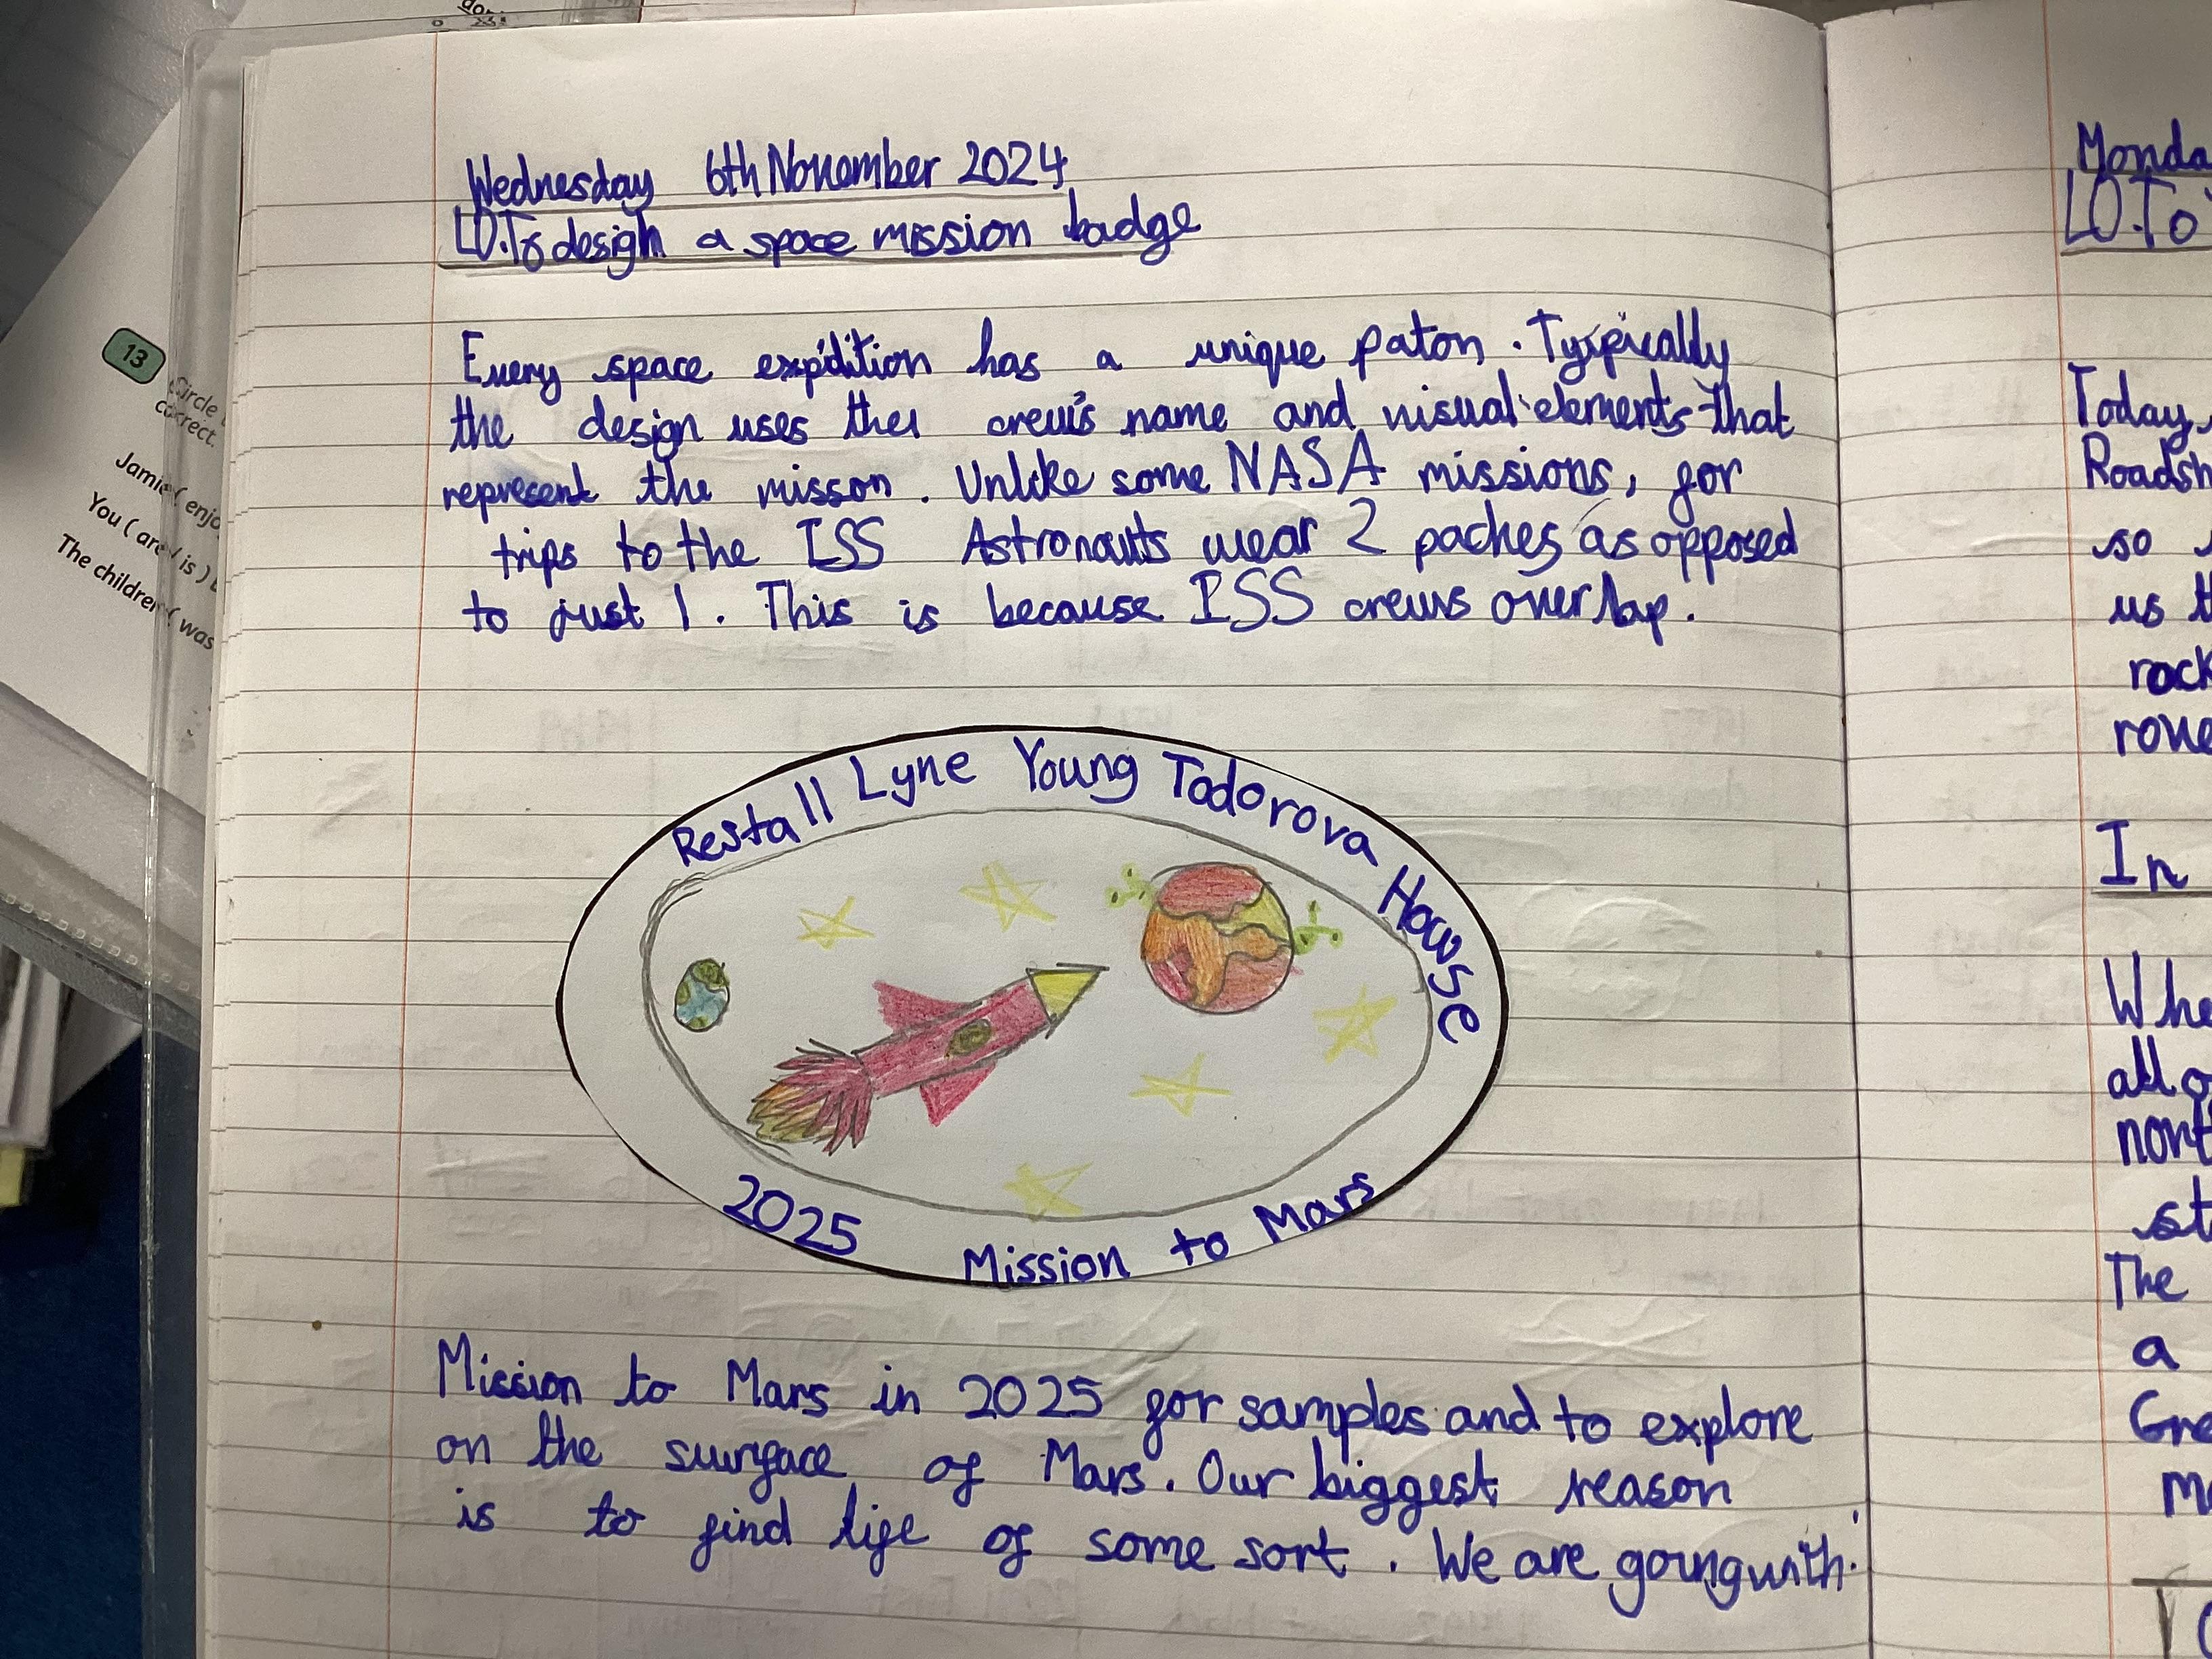 Wednesday 6th November 2024
LO.To design a space mission badge
Every space expidition has a unique paton. Typically
the design uses the crew's name and visual elements that
represent the misson. Unlike some NASA missions, for
trips to the ISS Astronauts wear 2 paches as opposed
to just 1. This is because ISS crews overlap.
Restall Lyne Young Todorova Howse
2025 Mission to Mars
Mission to Mars in 2025 for samples and to explore
on the surface of Mars. Our biggest reason
is to find life of some sort. We are going with
13
Circle
correct.
Jamie ( enjo
You ( are / is )
The children ( was
Monda
LO.To
Today,
Roadsh
so
us th
rock
rove
In
Whe
all o
nort
st
The
a
Gre